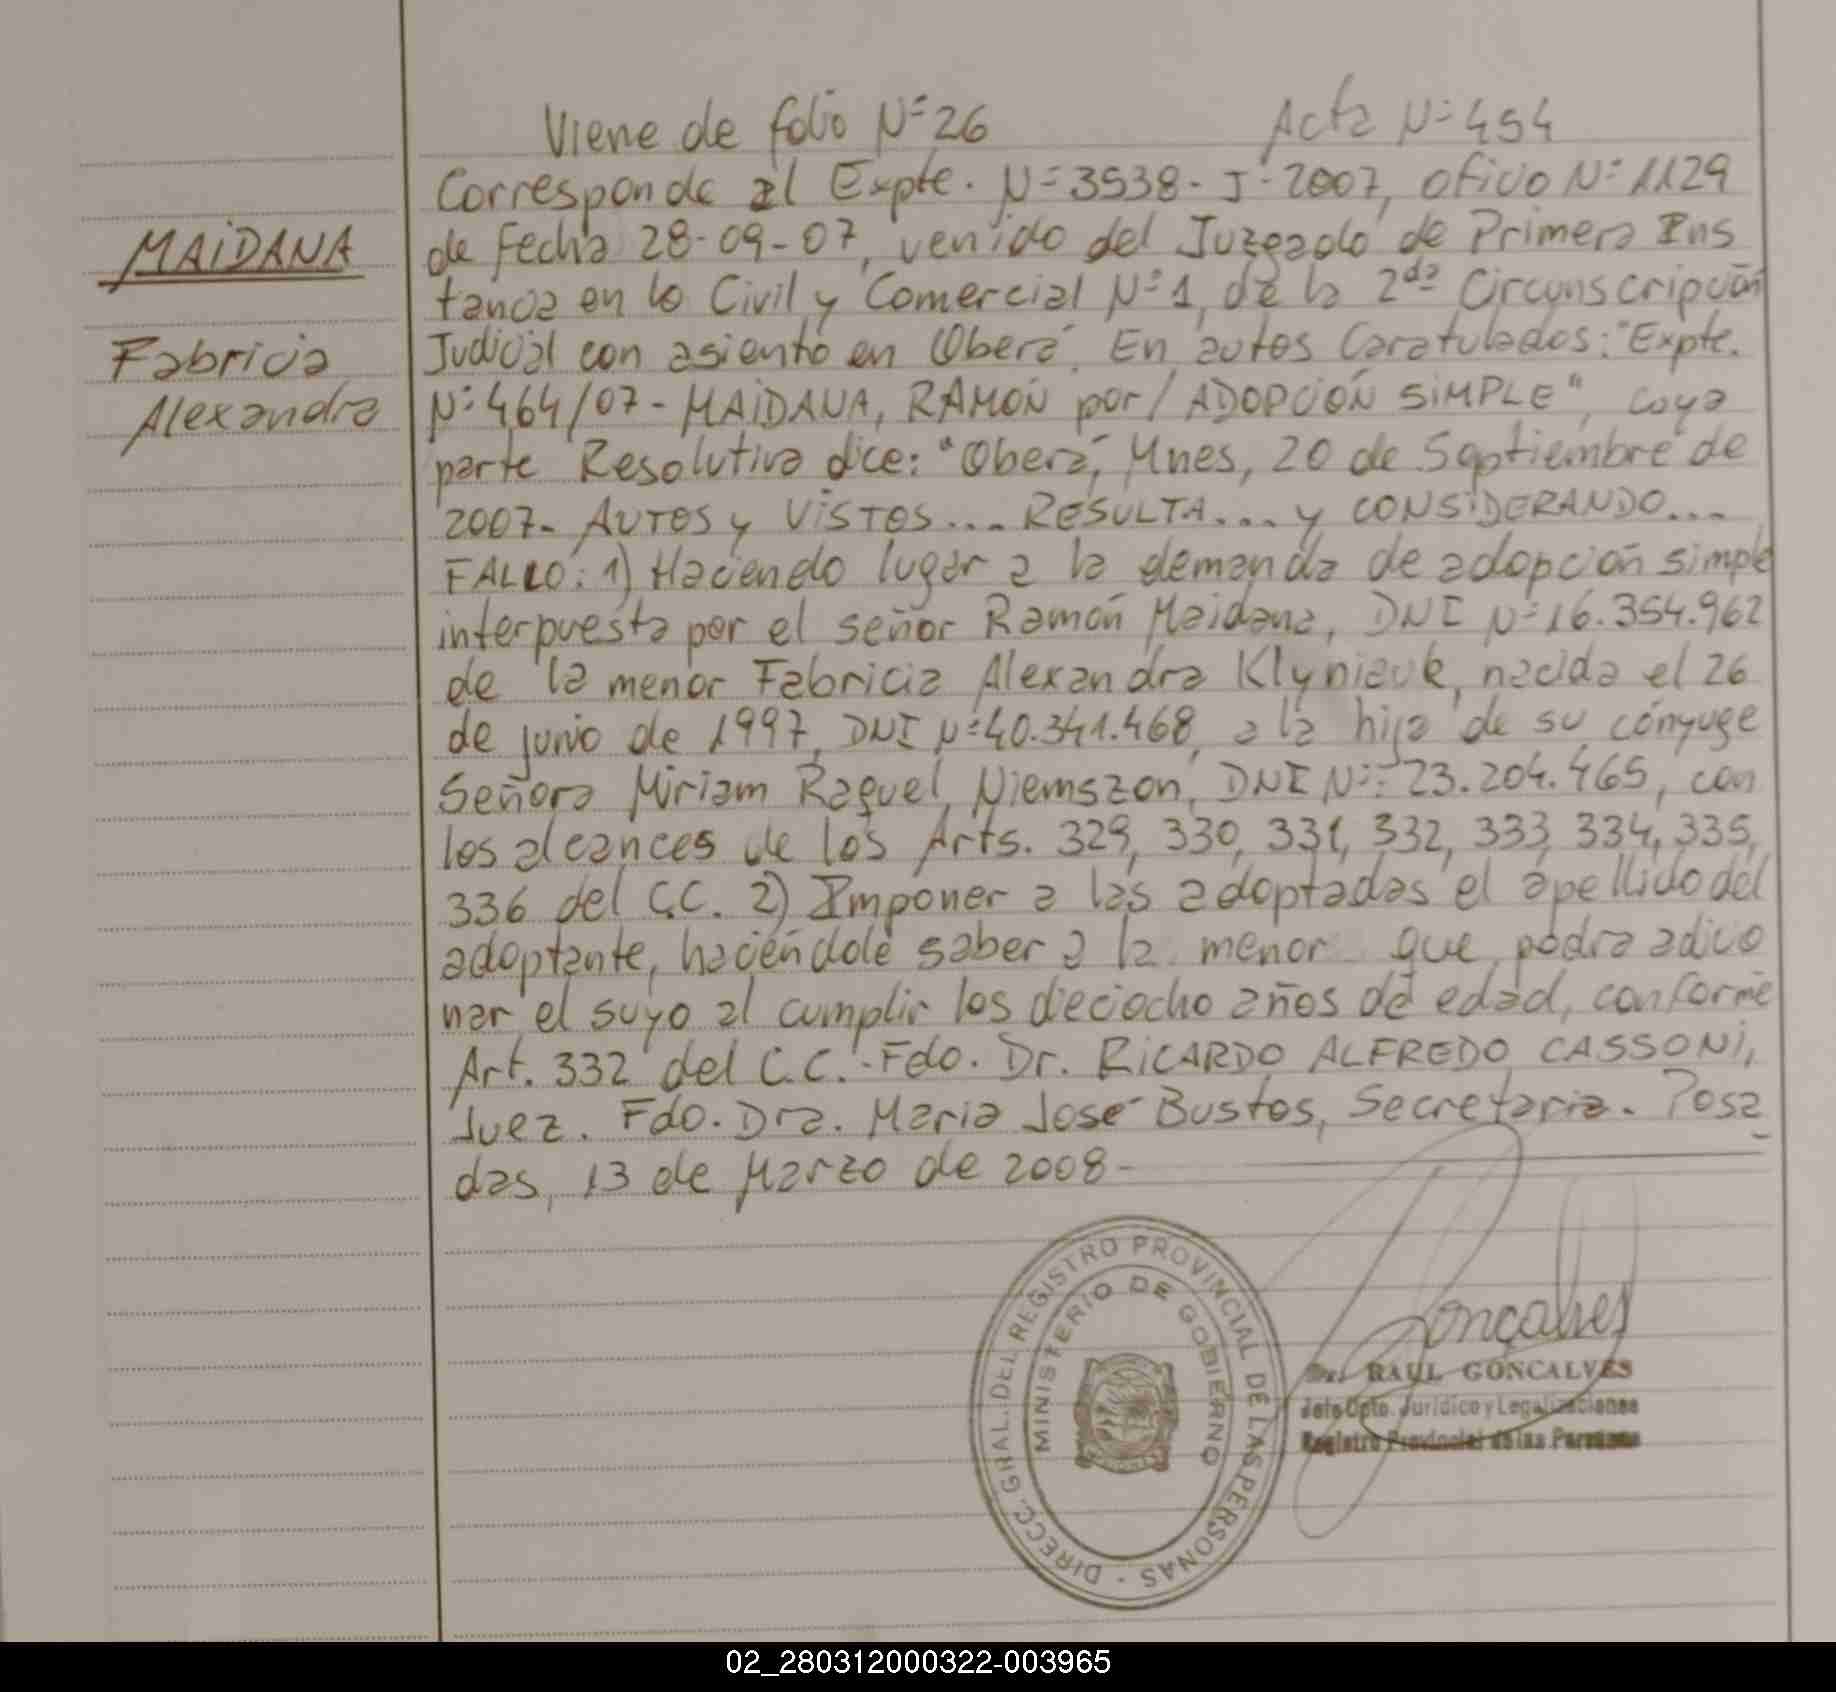 Viene de folio Nº 26 Acta Nº 454
Corresponde al Expte. Nº 3538-J-2007, oficio Nº 1129
de fecha 28-09-07, venido del Juzgado de Primera Ins
MAiDANA
tancia en lo Civil y Comercial Nº 1, de la 2da Circunscripción
Judicial con asiento en Oberá. En autos Caratulados: "Expte.
Fabricia
Nº 464/07 - MAiDANA, RAMÓN por/ ADOPCIÓN SiMPLE", cuya
Alexandra
parte Resolutiva dice: "Oberá, Mnes, 20 de Septiembre de
2007- AUTOS y ViSTOS.... RESULTA.... y CONSiDERANDO....
FALLO: 1) Haciendo lugar a la demanda de adopción simple
interpuesta por el señor Ramón Maidana, DNI Nº 16.354.962
de la menor Fabricia Alexandra Klyniauk, nacida el 26
de junio de 1997, DNI Nº 40.341.468, a la hija de su cónyuge
Señora Miriam Raquel Niemszon, DNI Nº: 23.204.465, con
los alcances de los Arts. 329, 330, 331, 332, 333, 334, 335,
336 del C.C. 2) Imponer a las adoptadas el apellido del
adoptante, haciéndole saber a la menor que podrá adicio
nar el suyo al cumplir los dieciocho años de edad, conforme
Art. 332 del C.C.-Fdo. Dr. RiCARDO ALFREDO CASSONi,
Juez. Fdo. Dra. Maria José Bustos, Secretaria. Posa
das, 13 de Marzo de 2008-
DIRECC. GRAL. DEL REGISTRO PROVINCIAL DE LAS PERSONAS -
MINISTERIO DE GOBIERNO
Gonçalves
Dr. RAUL GONCALVES
Jefe Dpto. Jurídico y Legalizaciones
Registro Provincial de las Personas
02_280312000322-003965